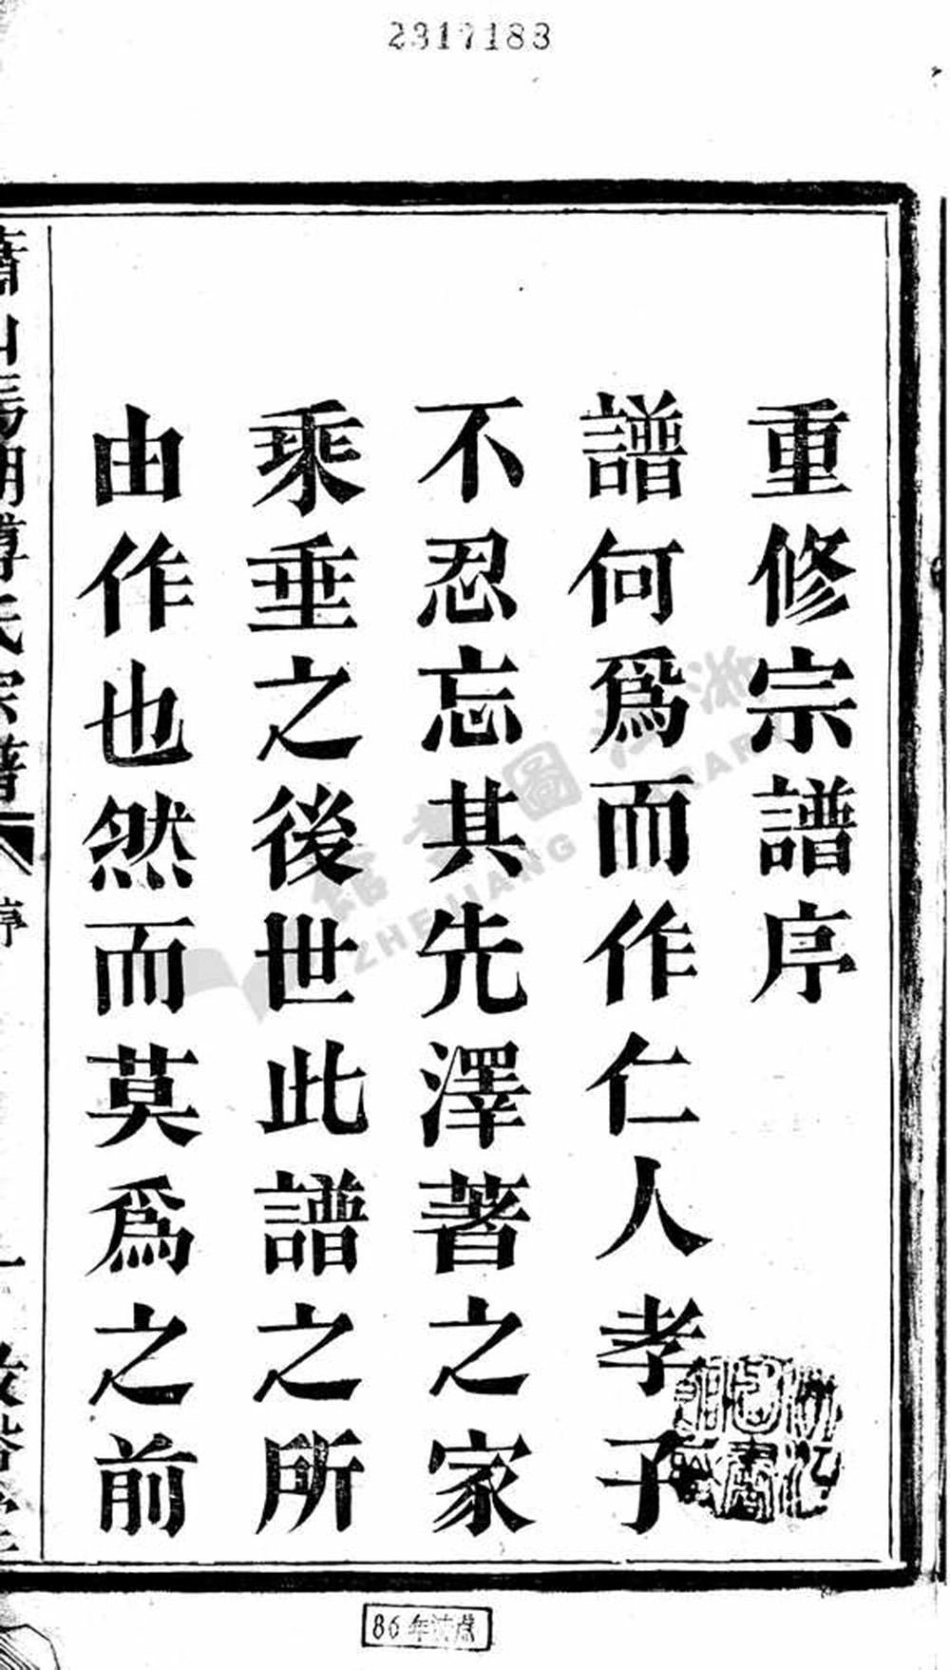 2317183
重修宗譜序
譜何爲而作仁人孝子
不忍忘其先澤著之家
乘垂之後世此譜之所
由作也然而莫爲之前
氏宗譜
序
一
浙江圖書館
ZHEJIANG LIBRARY
86年